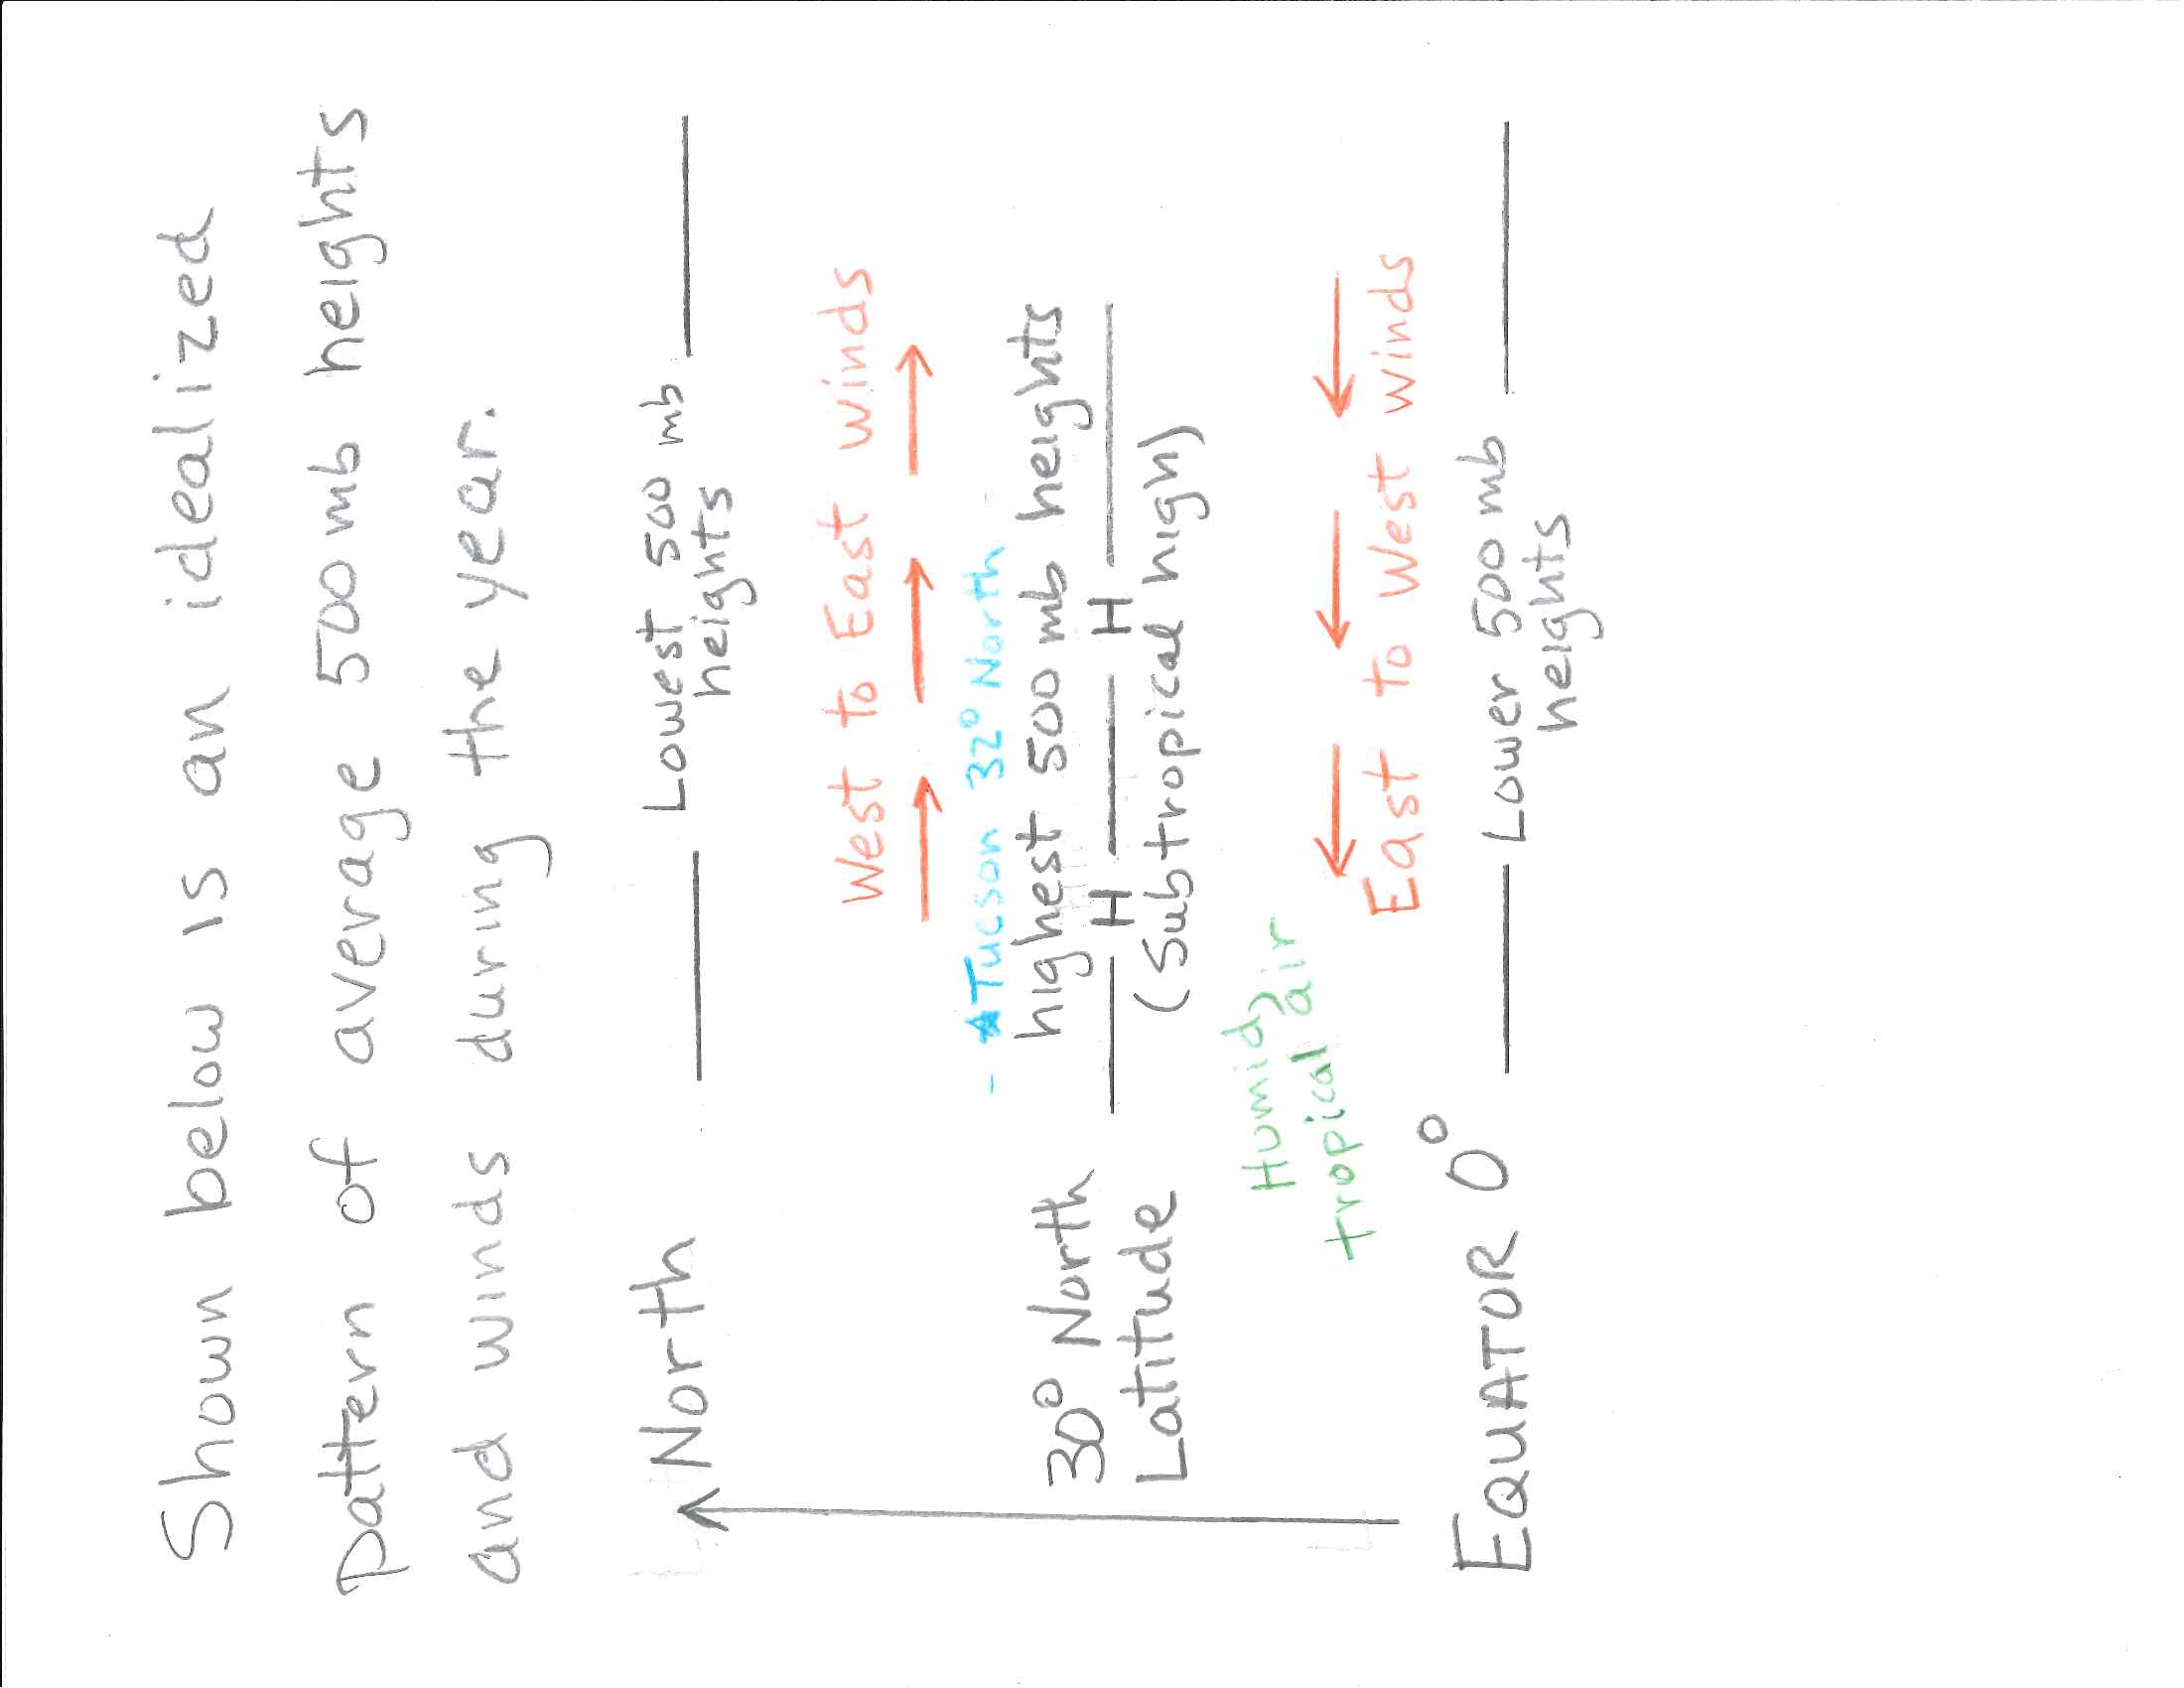 Shown below is an idealized
pattern of average 500 mb heights
and winds during the year.
North
Lowest 500 mb
heights
West to East winds
Tucson 32° North
highest 500 mb heights
30° North
Latitude
H H
(Subtropical high)
Humid,
tropical air
East to West winds
EQUATOR 0°
Lower 500 mb
heights